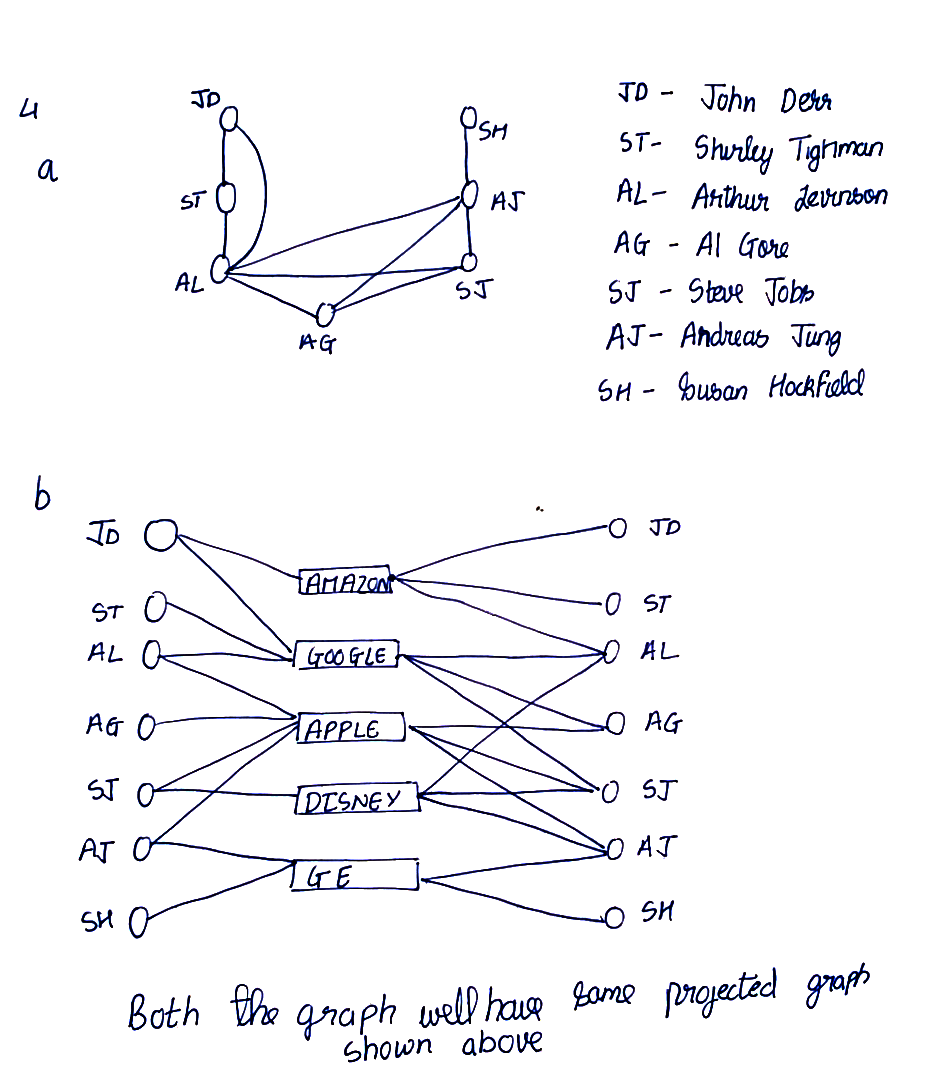 4
a
JD
ST
AL
AG
SH
AJ
SJ
JD - John Derr
ST- Shurley Tighman
AL- Arthur Levinson
AG - Al Gore
SJ - Steve Jobs
AJ- Andreas Jung
SH - Susan Hockfield
b
JD AMAZON JD
ST ST
AL GOOGLE AL
AG APPLE AG
SJ DISNEY SJ
AJ GE AJ
SH SH
Both the graph well have same projected graph
shown above